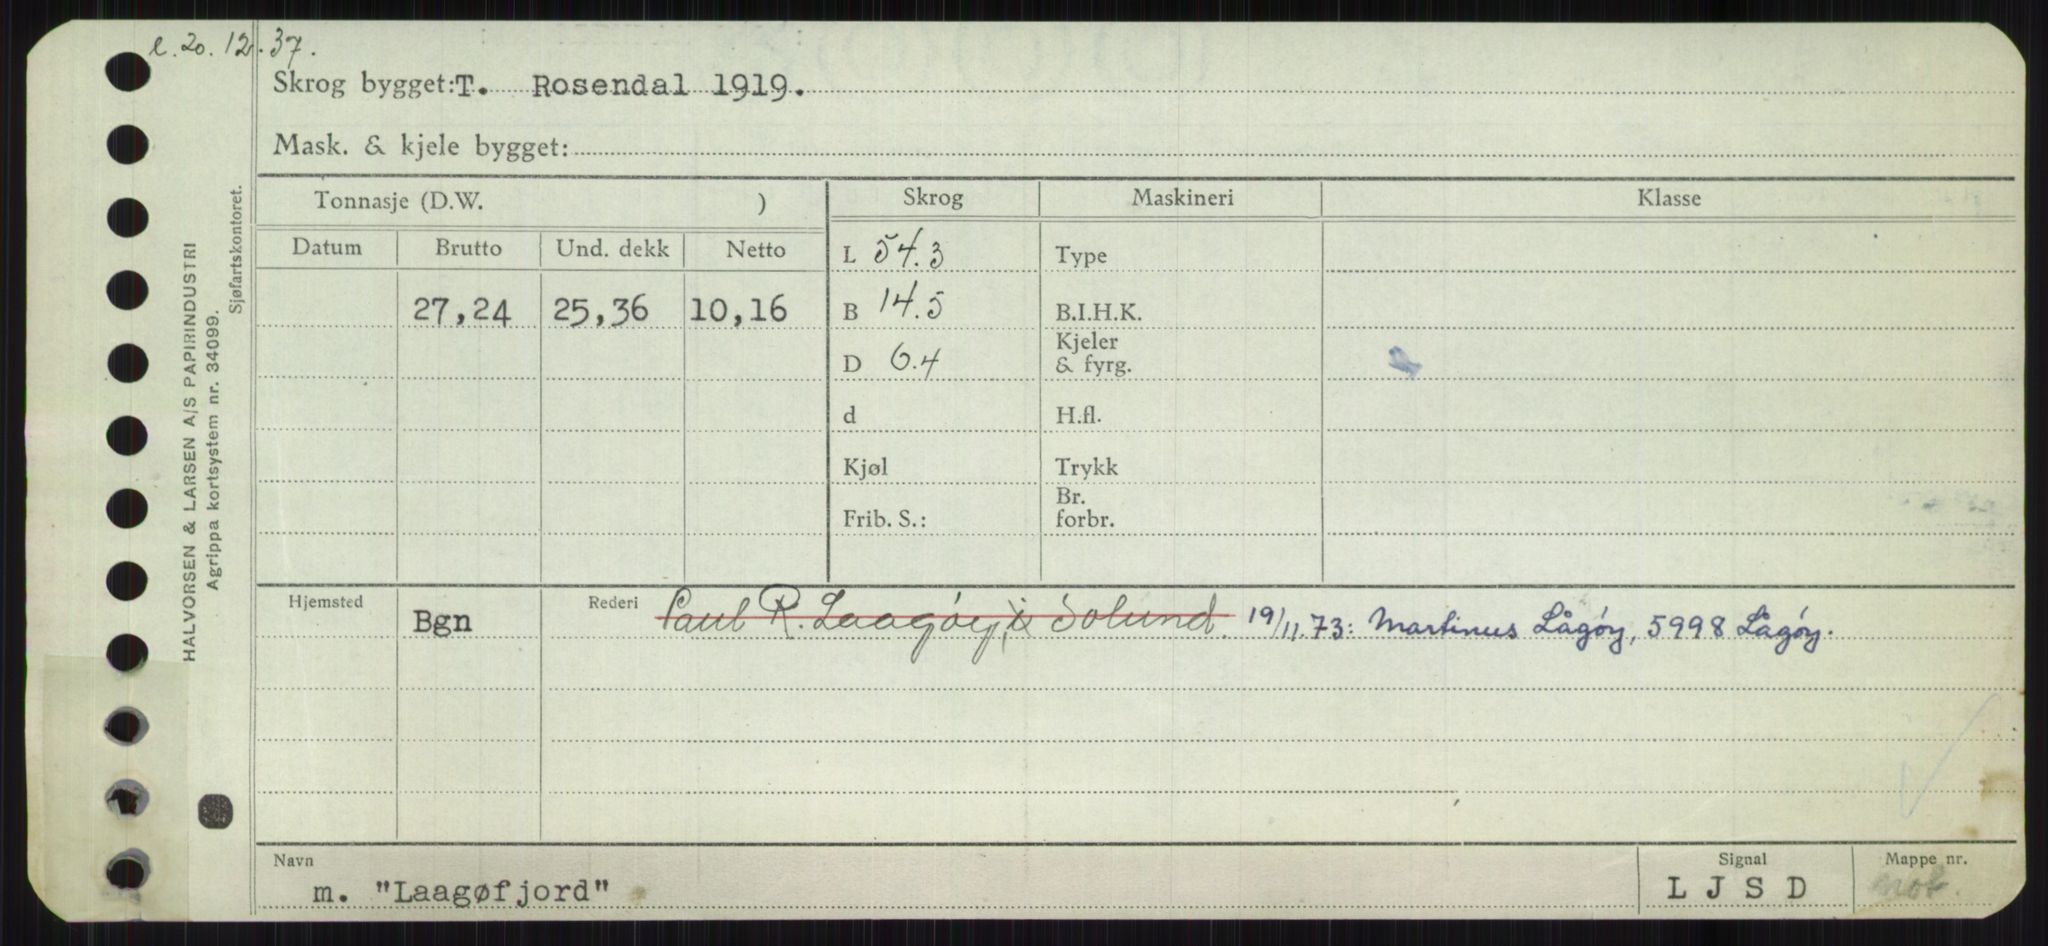 e. 20. 12. 37.
Skrog bygget: T. Rosendal 1919.
Mask. & kjele bygget:
HALVORSEN & LARSEN A/S PAPIRINDUSTRI
Agrippa kortsystem nr. 34099.
Sjøfartskontoret.
Tonnasje (D.W. ) Skrog Maskineri Klasse
Datum Brutto Und. dekk Netto
L 54.3 Type
27,24 25,36 10,16 B 14.5 B.I.H.K.
D 6.4 Kjeler & fyrg.
d H.fl.
Kjøl Trykk
Frib. S.: Br. forbr.
Hjemsted Bgn Rederi Paul R. Laagøy, i Solund. 19/11.73: Martinus Lågøy, 5998 Lågøy.
Navn Signal Mappe nr.
m. "Laagøfjord" L J S D not.